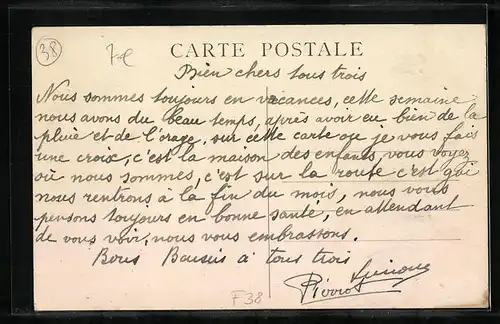 38
7-e
CARTE POSTALE
Bien chers tous trois
Nous sommes toujours en vacances, cette semaine
nous avons du beau temps, après avoir eu bien de la
pluie et de l'orage, sur cette carte ou je vous fais
une croise, c'est la maison des enfants, vous voyez
où nous sommes, c'est sur la route c'est qui
nous rentrons à la fin du mois, nous vous
pensons toujours en bonne santé, en attendant
de vous voir, nous vous embrassons.
Bons Baisers à tous trois
Pierrot
F38